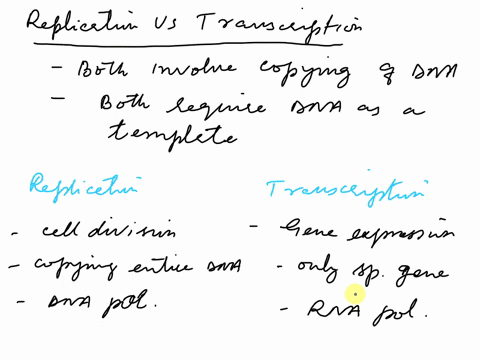 Replication vs Transcription
- Both involve copying of DNA
- Both require DNA as a
templete
Replication
- cell division
- copying entire DNA
- DNA pol.
Transcription
- Gene expression
- only sp. gene
- RNA pol.